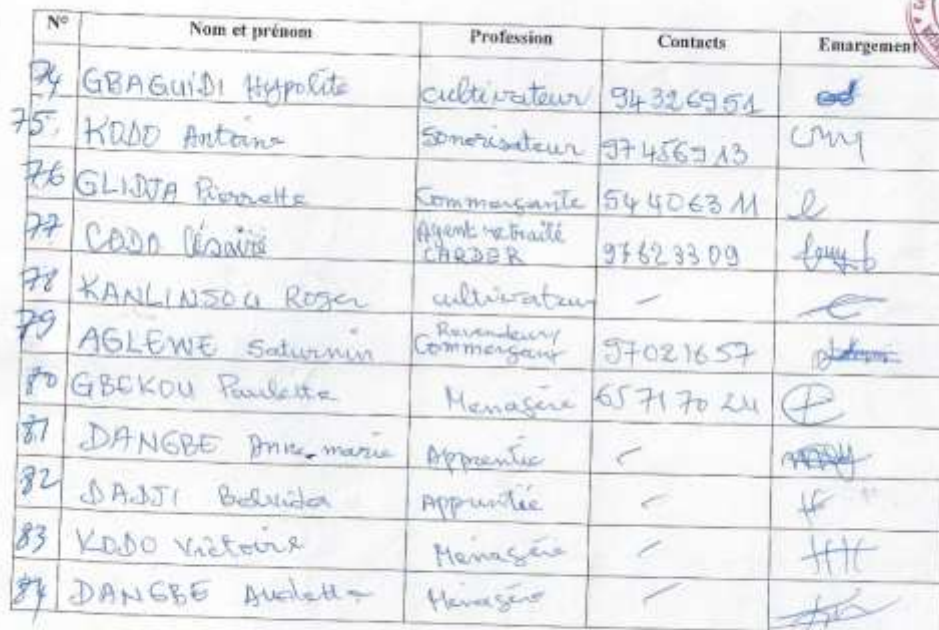 N° Nom et prénom Profession Contacts Emargement
74 GBAGUIDI Hypolite cultivateur 94326951
75. KODO Antoine Sonorisateur 97456913
76 GLIDJA Pierrette Commerçante 54406311
77 CODO Césaire Agent retraité CARDER 97623309
78 KANLINSOU Roger cultivateur -
79 AGLEWE Saturnin Revendeur/ Commerçant 97021657
80 GBEKOU Paulette Menagère 65717024
81 DANGBE Anne-marie Apprentie -
82 DADJI Apprentie -
83 KODO Victoire Menagère -
84 DANGBE Menagère -